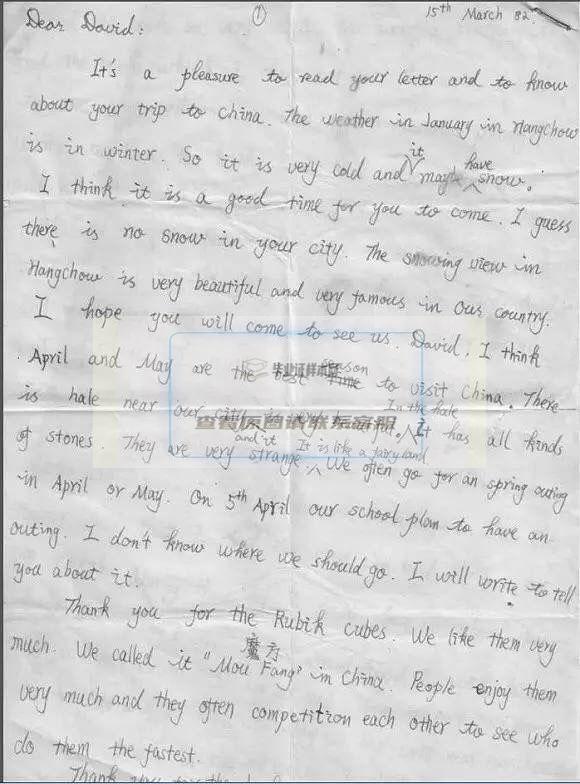 ① 15th March 82
Dear David:
It's a pleasure to read your letter and to know
about your trip to China. The weather in January in Hangchow
it have
is in winter. So it is very cold and maybe snow.
I think it is a good time for you to come. I guess
there is no snow in your city. The snowing view in
Hangchow is very beautiful and very famous in our country.
I hope you will come to see us. David, I think
season
April and May are the best time to visit China. There
毕业证样本
In the hale
is hale near our city It has all kinds
查看原图请联系客服
and it It is like a fairyland.
of stones. They are very strange. We often go for an spring outing
in April or May. On 5th April our school plan to have an
outing. I don't know where we should go. I will write to tell
you about it.
Thank you for the Rubik cubes. We like them very
魔方
much. We called it "Mou Fang" in China. People enjoy them
very much and they often competition each other to see who
do them the fastest.
Thank you for the